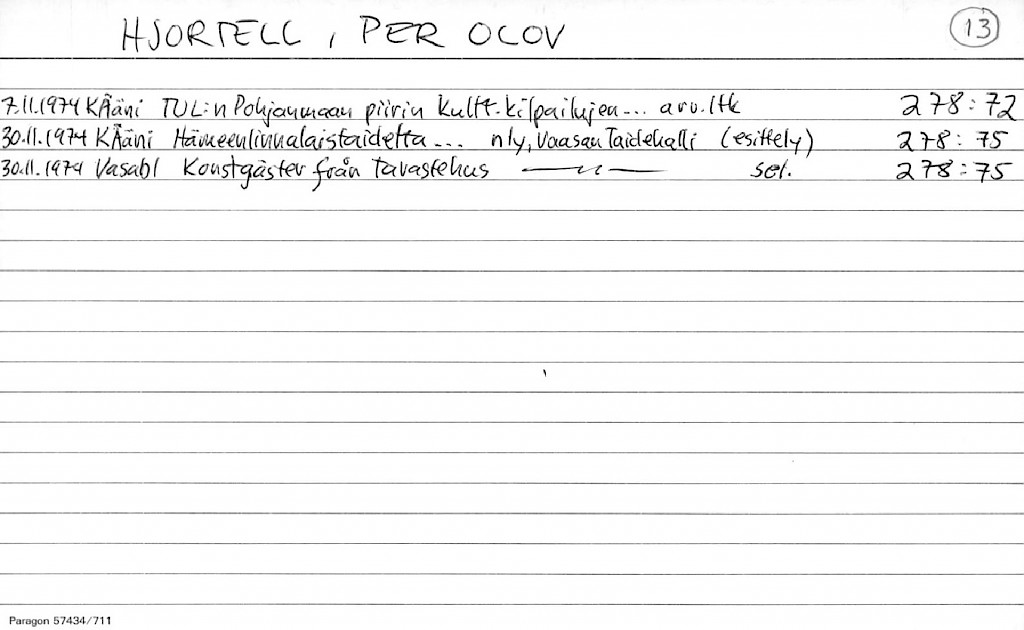 HJORTELL, PER OLOV 13
7.11.1974 KÄäni TUL:n Pohjanmaan piirin kultt.kilpailujen... arv.ltk 278:72
30.11.1974 KÄäni Hämeenlinnalaistaidetta... nly, Vaasan Taidehalli (esittely) 278:75
30.11.1974 Vasabl Konstgäster från Tavastehus —"— sel. 278:75
Paragon 57434/711